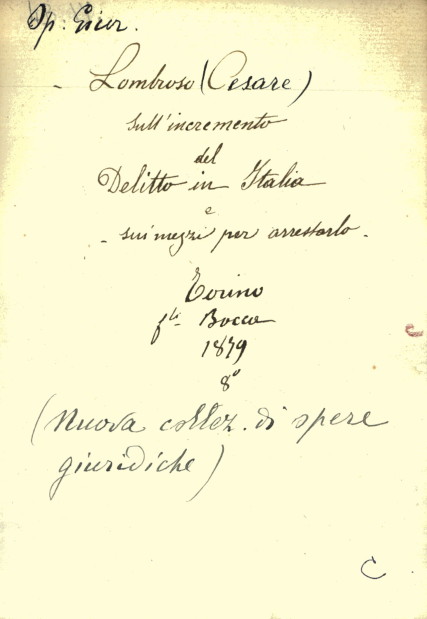 Op. Giur.
- Lombroso (Cesare)
Sull'incremento
del
Delitto in Italia
e
- sui mezzi per arrestarlo -
Torino
f.lli Bocca
1879
8°
(Nuova collez. di opere
giuridiche)
C